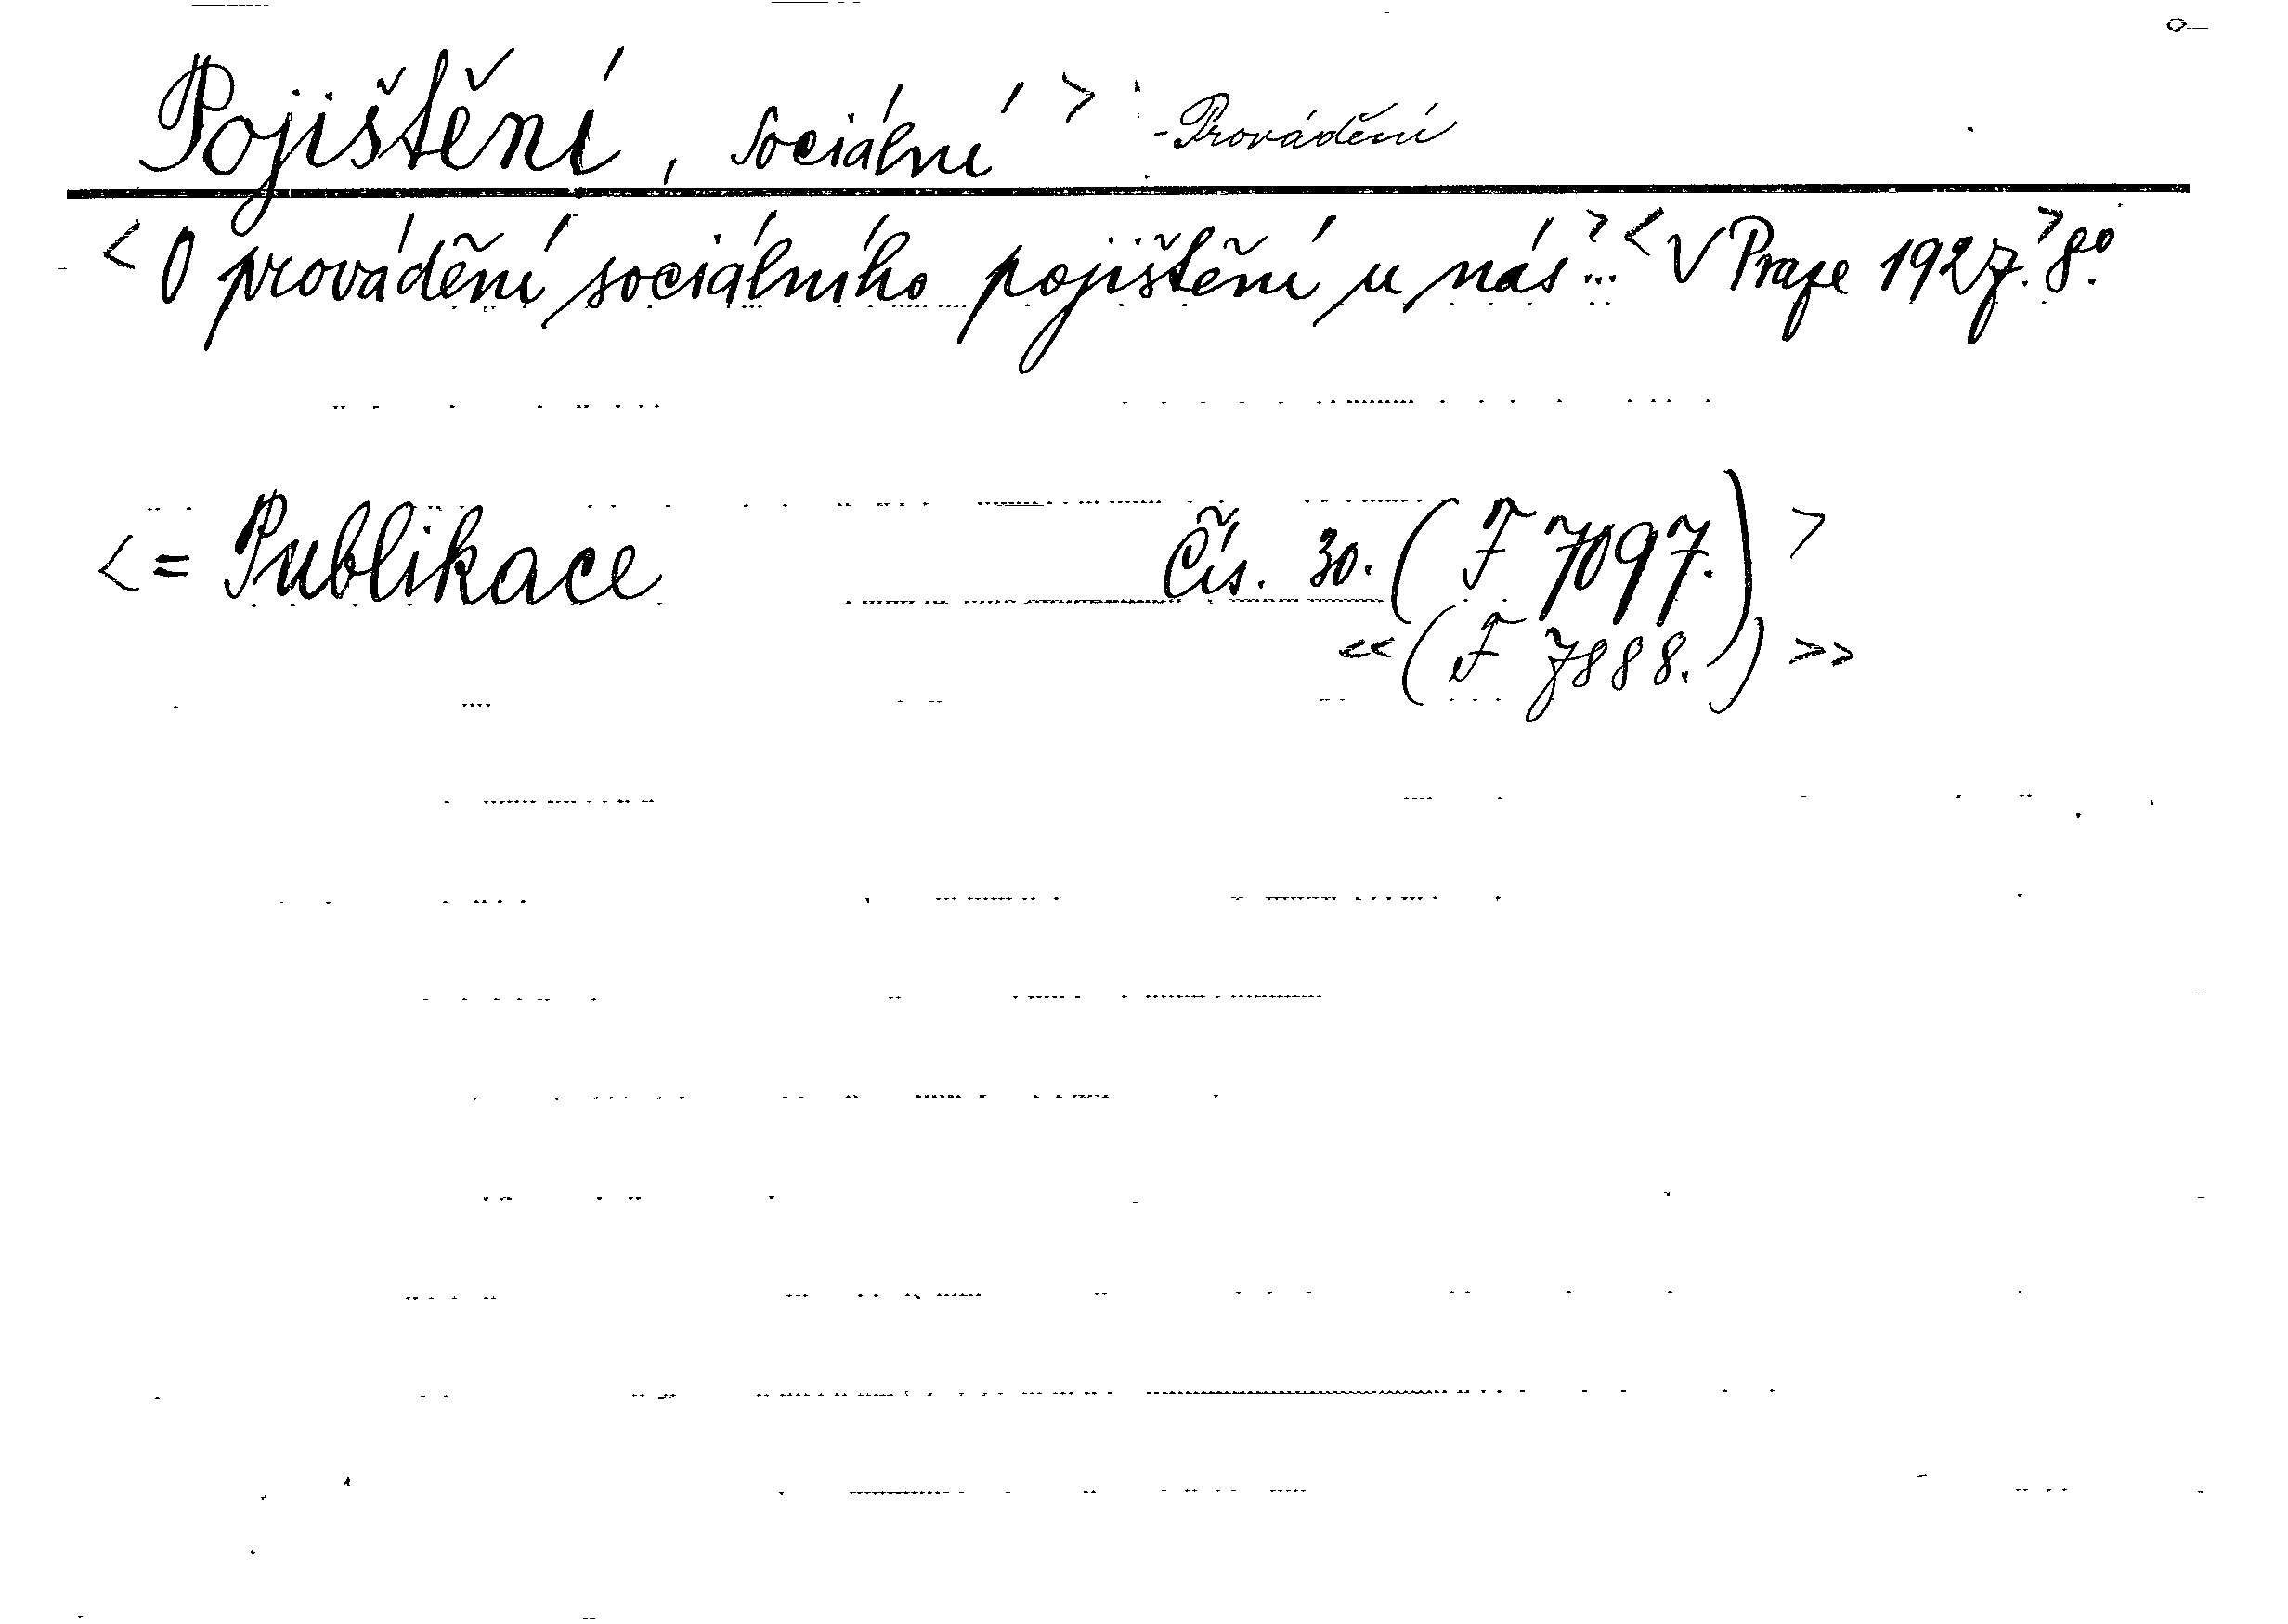 Pojištění, sociální > - Provádění
< O provádění sociálního pojištění u nás...> < V Praze 1927.> 8°.
< = Publikace čís. 30. (F 7097.) >
<< (F 7888.) >>